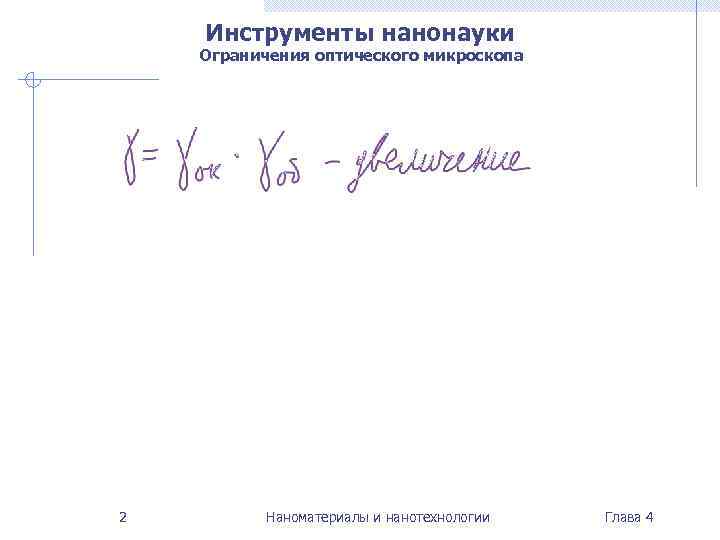 Инструменты нанонауки
Ограничения оптического микроскопа
γ = γок · γоб – увеличение
2 Наноматериалы и нанотехнологии Глава 4